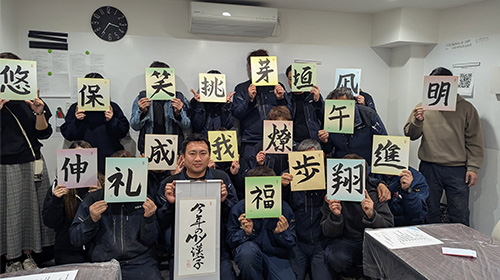 悠 保 笑 挑 芽 垣 凪 明
成 我 燎 午
伸 礼 福 歩 翔 進
今年のMy漢字